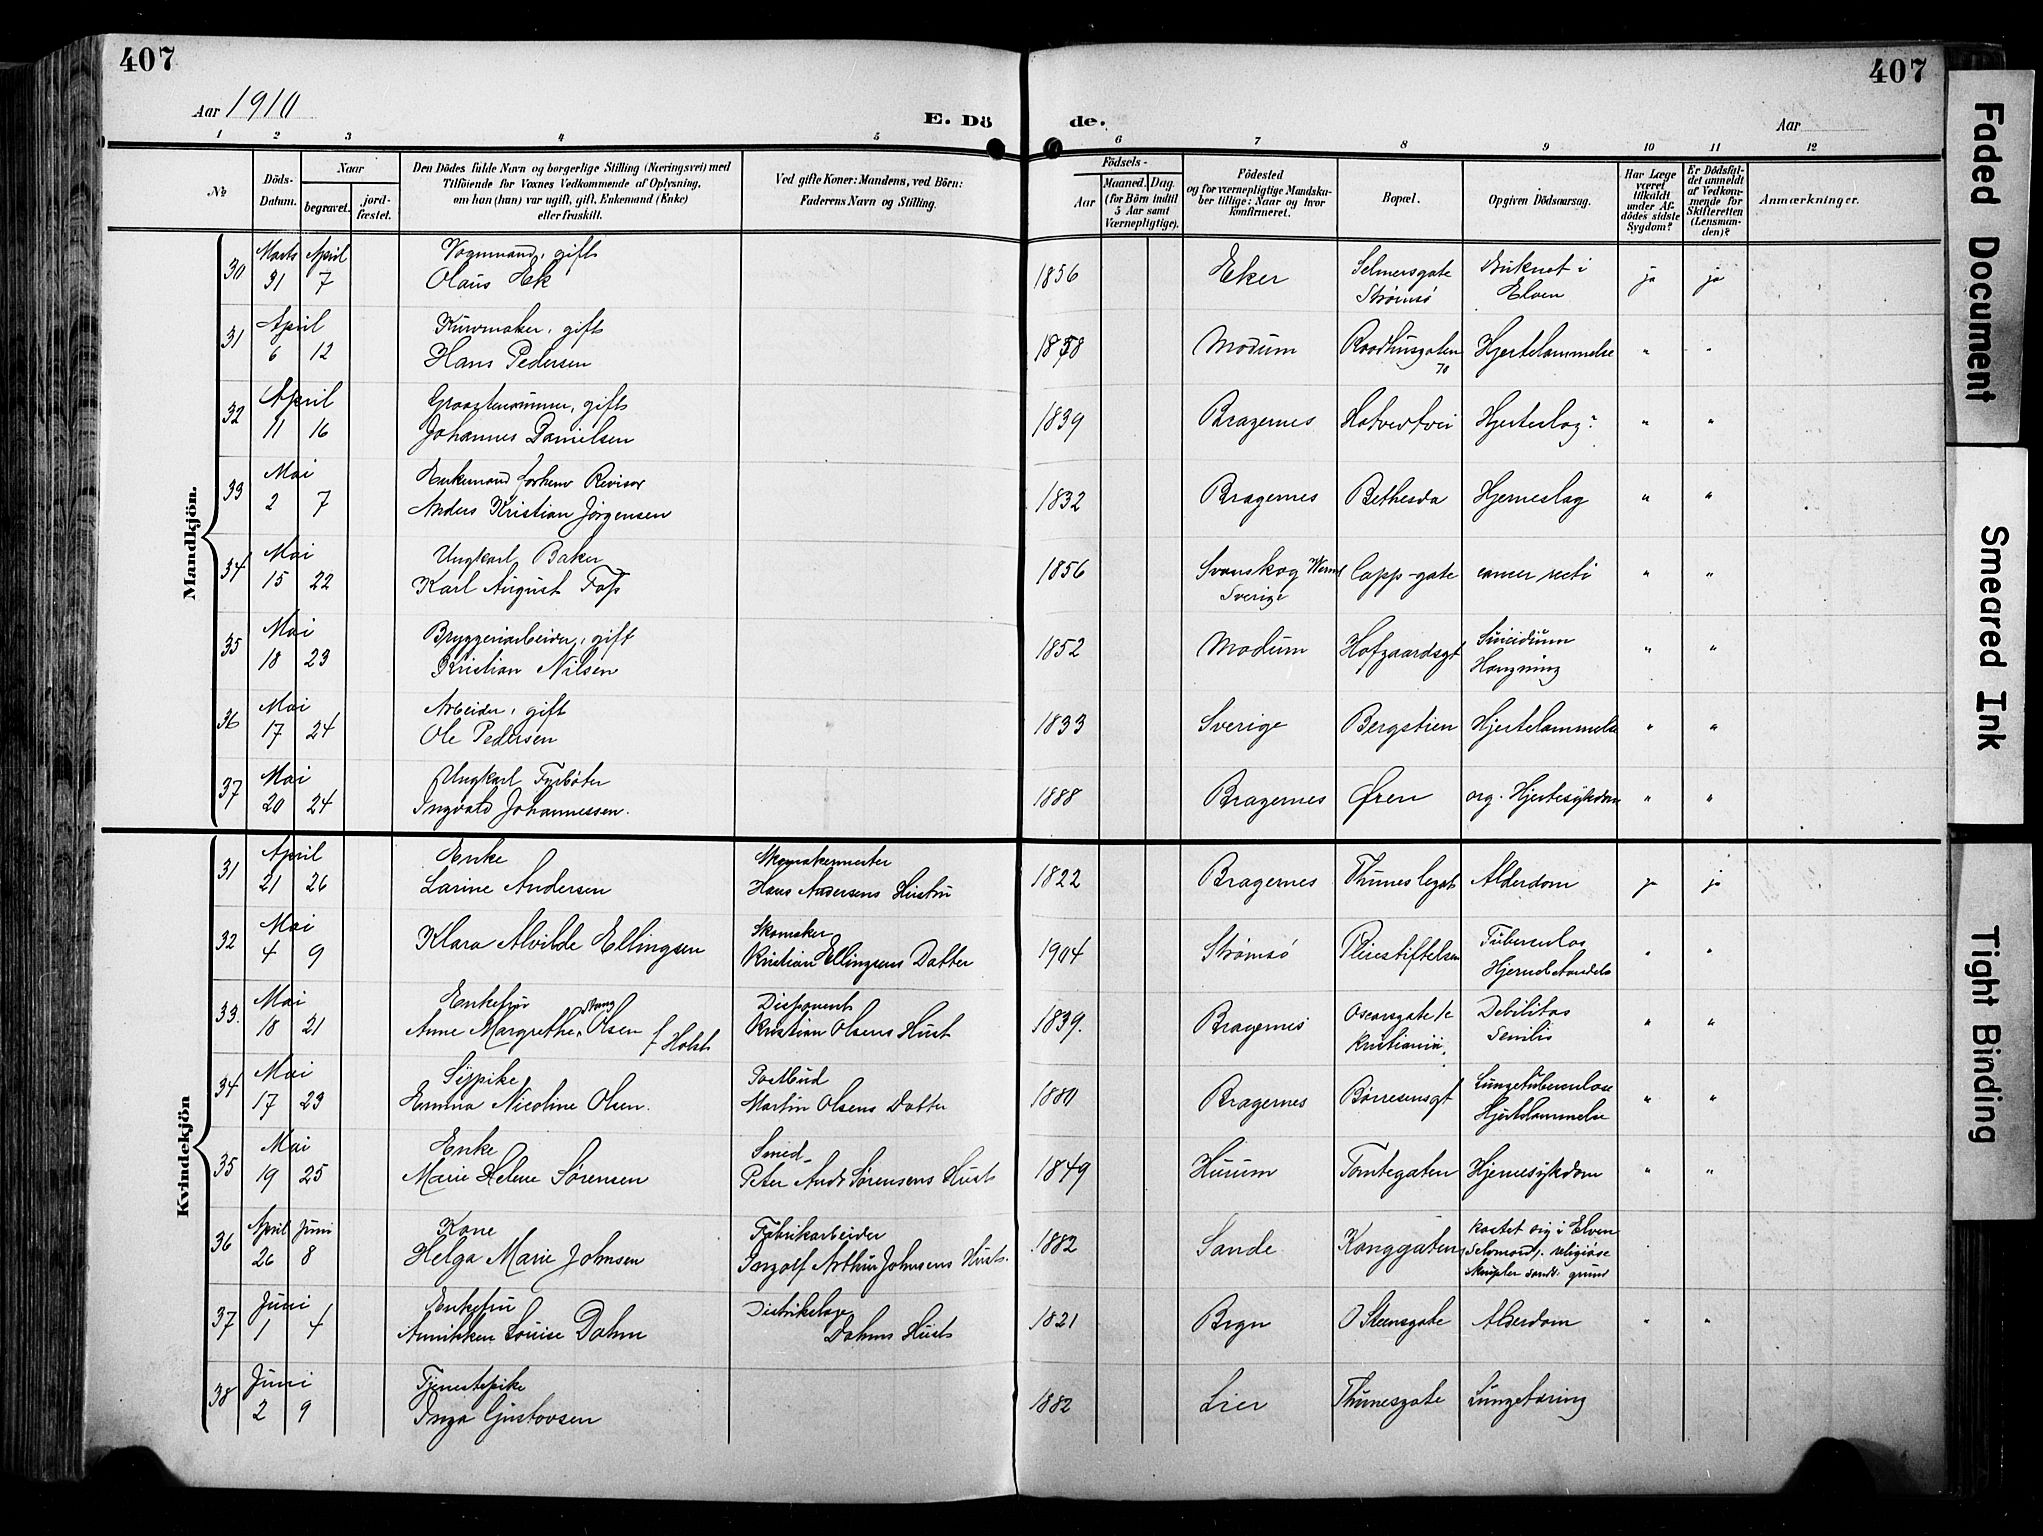 407
407
Aar 1910
E. Dö
de.
Aar
1 2 3 4 5 6 7 8 9 10 11 12
No
Döds-Datum.
Naar
begravet.
jordfæstet.
Den Dödes fulde Navn og borgerlige Stilling (Næringsvei) med Tilföiende for Voxnes Vedkommende af Oplysning, om han (hun) var ugift, gift, Enkemand (Enke) eller fraskilt.
Ved gifte Koner: Mandens, ved Börn: Faderens Navn og Stilling.
Födsels-
Aar
Maaned. Dag.
(for Börn indtil 5 Aar samt Værnepligtige).
Födested og for værnepligtige Mandskaber tillige: Naar og hvor konfirmeret.
Bopæl.
Opgiven Dödsaarsag.
Har Læge været tilkaldt under Afdödes sidste Sygdom?
Er Dödsfaldet anmeldt af Vedkommende for Skifteretten (Lensmanden)?
Anmærkninger.
Mandkjön.
30 Marts 31 April 7 Vognmand, gift Olaus Ek 1856 Eker Selmersgate Strømsø Druknet i Elven ja ja
31 April 6 12 Kurvmaker, gift Hans Pedersen Modum Raadhusgaten 70 Hjertelammelse " "
32 April 11 16 gift Johannes Danielsen 1839 Bragernes Hotvedtvei Hjerteslag? " "
33 Mai 2 7 Enkemand forhenv Revisor Anders Kristian Jørgensen 1832 Bragernes Bethesda Hjerneslag " "
34 Mai 15 22 Ungkarl Baker Karl August Foss 1856 Svanskog Sverige Capp-gate cancer recti " "
35 Mai 18 23 Bryggeriarbeider, gift Kristian Nilsen 1852 Modum Hofgaardsgt Suicidium Hængning " "
36 Mai 17 24 Arbeider, gift Ole Pedersen 1833 Sverige Bergstien Hjertelammelse " "
37 Mai 20 24 Ungkarl Fyrbøter Ingvald Johannessen. 1888 Bragernes Øren org. Hjertesykdom " "
Kvindekjön
31 April 21 26 Enke Larine Andersen Skomakermester Hans Andersens Hustru 1822 Bragernes Thunes legat Alderdom ja ja
32 Mai 4 9 Klara Alvilde Ellingsen Skomaker Kristian Ellingsens Datter 1904 Strømsø Pleiestiftelsen Tuberculos " "
33. Mai 18 21 Enkefru Anne Margrethe Stang Olsen f Holst Disponent Kristian Olsens Hust 1839. Bragernes Oscarsgate Kristiania, Debilitas Senilis " "
34 Mai 17 23 Sypike Emma Nicoline Olsen. Postbud Martin Olsens Datter 1880 Bragernes Børresensgt Lungetuberculose Hjertelammelse " "
35 Mai 19 25 Enke Marie Helene Sørensen Smed Peter Andr Sørensens Hust 1849 Hurum Tomtegaten Hjernesykdom " "
36 April 26 Juni 8 Kone Helga Marie Johnsen Fabrikarbeider Ingolf Arthur Johnsens Hust. 1882 Sande Konggaten kastet sig i Elven Selvmord, religiøse skrupler grund
37 Juni 1 4 Enkefru Annikken Louise Dahm Distriktslæge Dahms Hust 1821 Brgn O Steensgate Alderdom " "
38 Juni 2 9 Tjenestepike Inga Gustavsen 1882 Lier Thunesgate Lungetæring
Faded Document
Smeared Ink
Tight Binding